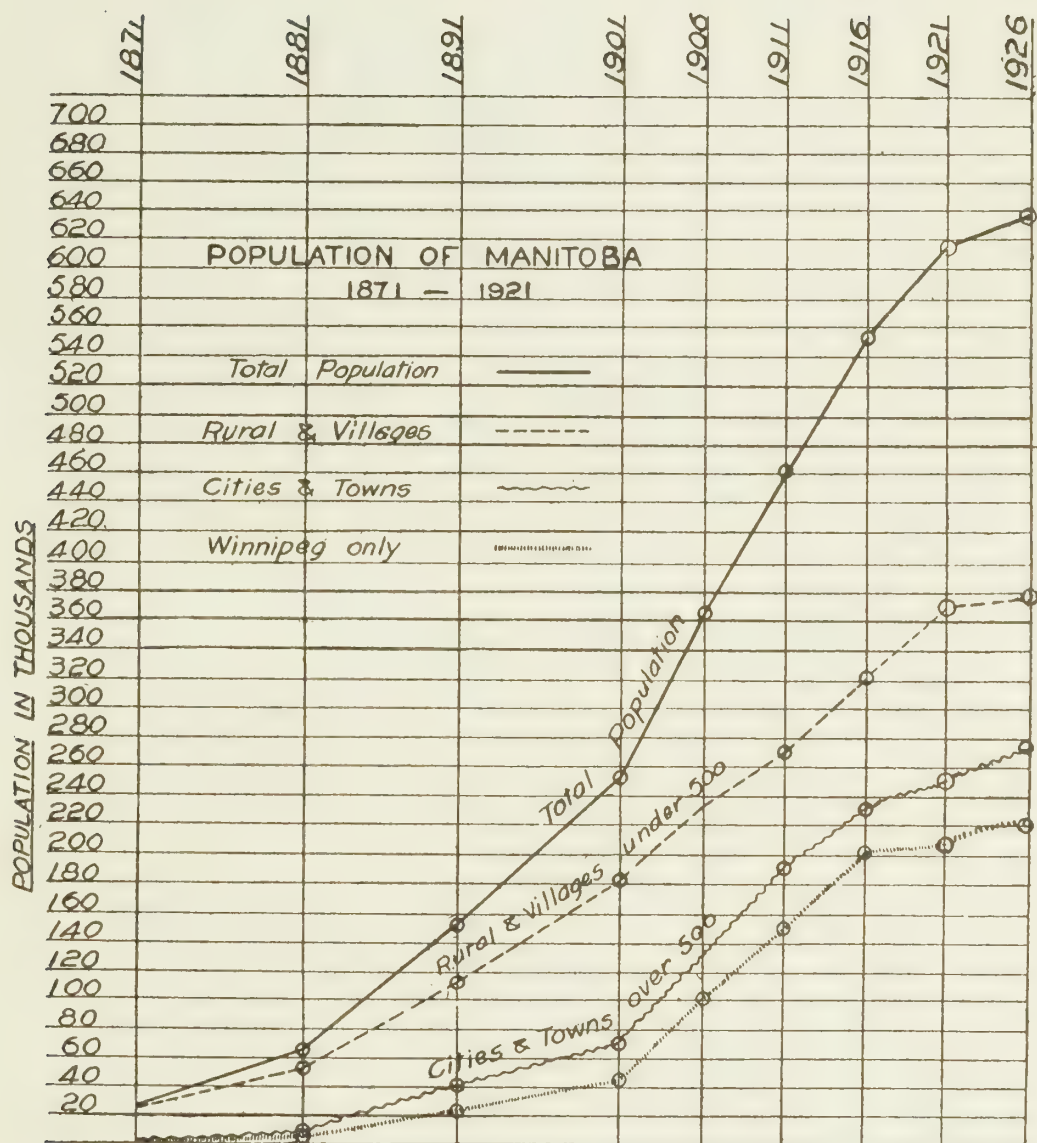 1871
1881
1891
1901
1906
1911
1916
1921
1926
700
680
660
640
620
600
580
560
540
520
500
480
460
440
420
400
380
360
340
320
300
280
260
240
220
200
180
160
140
120
100
80
60
40
20
POPULATION IN THOUSANDS
POPULATION OF MANITOBA
1871 — 1921
Total Population
Rural & Villages
Cities & Towns
Winnipeg only
Total Population
Rural & Villages under 500
Cities & Towns over 500